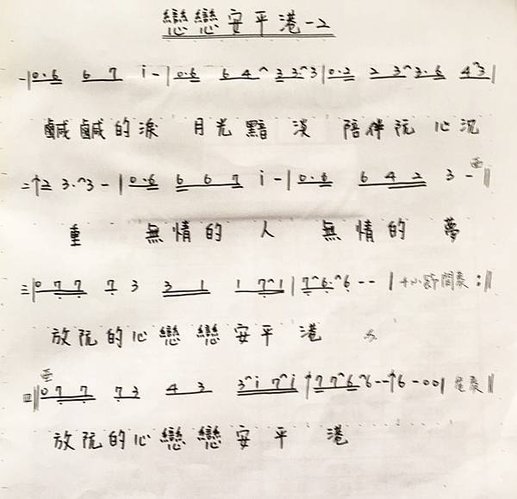 戀戀安平港-2
-|0·6 6 7 i-|0·6 6 4^ 3 3^3|0·2 2 3^3·6 4^3|
鹹鹹的淚 月光黯淡 陪伴阮 心沉
=↑2 3·^3-|0·6 6 6 7 i-|0·6 6 4 2 3-|
重 無情的人 無情的夢
三|0 7 7 7 3 3 1 1 7^1|7^6·^6--|十小節間奏:||
放阮的心戀戀安平港
四||0 7 7 7 3 4 3 3^i 7^i|↑7 7^6^6--↑6-00|尾奏||
放阮的心戀戀安平 港